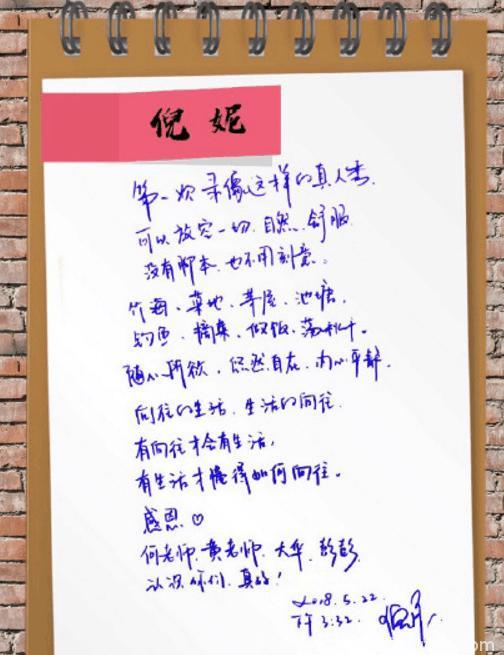 倪妮
第一次录像这样的真人秀.
可以放空一切.自然.舒服
没有脚本.也不用刻意。
竹海、菜地、茅屋、池塘.
钓鱼、摘菜、做饭、荡秋千。
随心所欲.悠然自在.内心平静.
向往的生活.生活的向往.
有向往才会有生活,
有生活才懂得如何向往。
感恩♡
何老师.黄老师.大华.彭彭.
认识你们.真好!
2018.5.22
下午3:32.